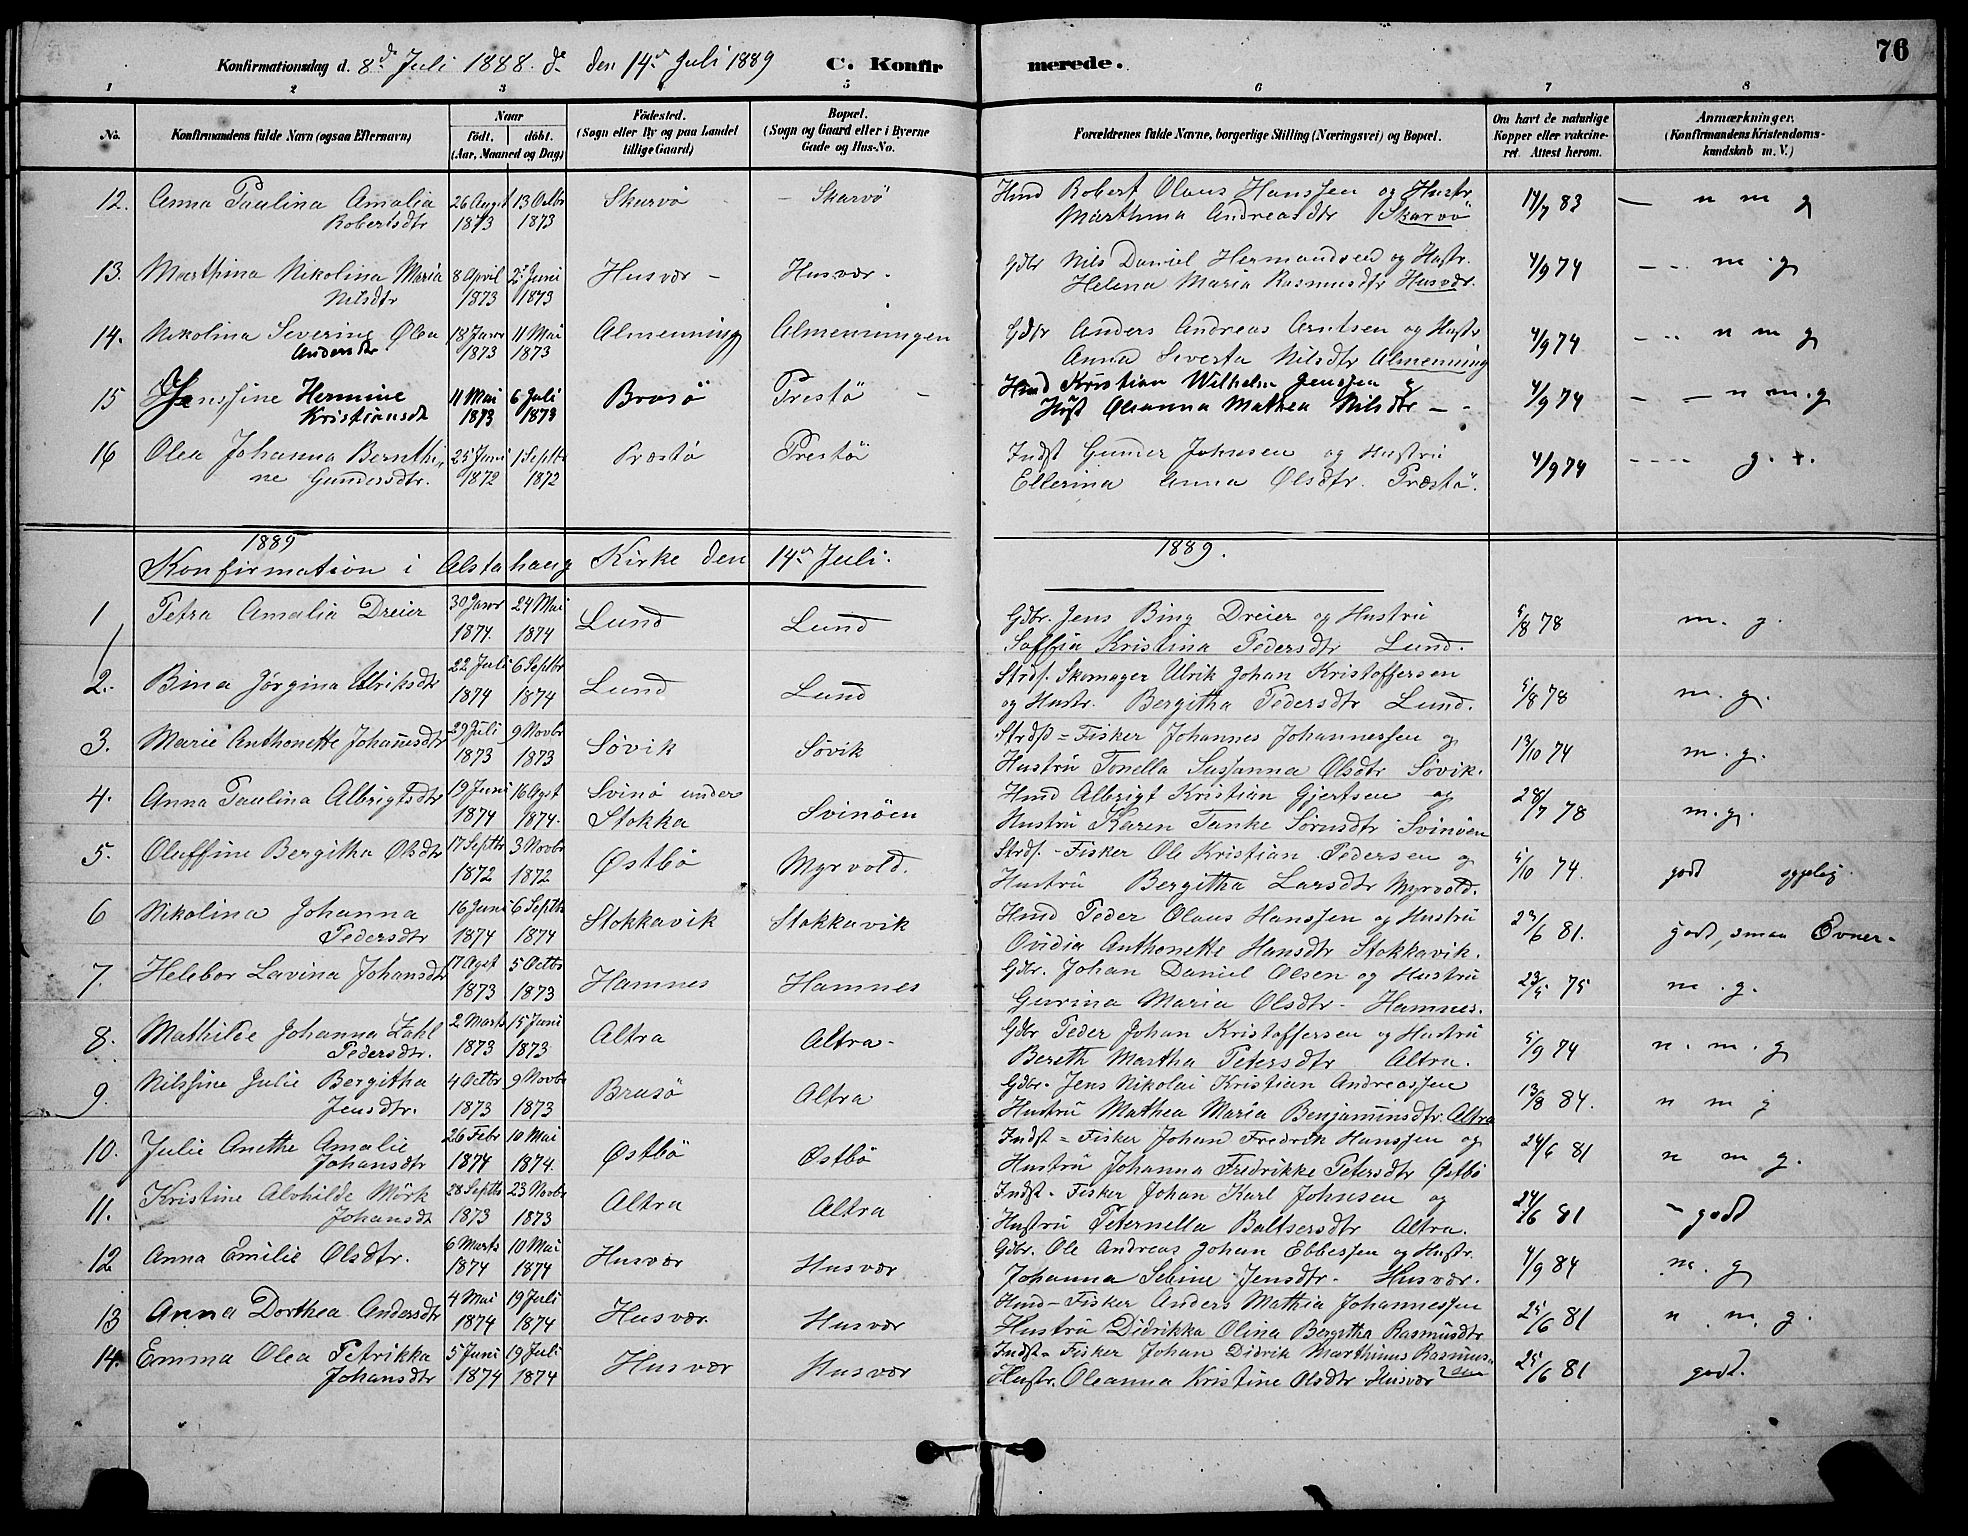 Konfirmationsdag d. 8de Juli 1888. de den 14de Juli 1889 C. Konfirmerede. 76
1 2 3 4 5 6 7 8
No. Konfirmandens fulde Navn (ogsaa Efternavn) Naar født. døbt. (Aar, Maaned og Dag) Fødested. (Sogn eller By og paa Landet tillige Gaard) Bopæl. (Sogn og Gaard eller i Byerne Gade og Hus-No. Forældrenes fulde Navne, borgerlige Stilling (Næringsvei) og Bopæl. Om havt de naturlige Kopper eller vakcineret. Attest herom. Anmærkninger. (Konfirmandens Kristendomskundskab m. V.)
12. Anna Paulina Amalia 26 Augst 13 Octbr Skarvö - Skarvö Hmd Robert Olaus Hanssen og Hustr. 14/7 83 — n m g
Robertsdtr 1873 1873 Marthina Andreasdtr Skarvö
13. Marthina Nikolina Maria 8 April 2 Juni Husvær - Husvær. Gdbr Nils Daniel Hermandsen og Hustr. 4/9 74 - - . m . g
Nilsdtr 1873 1873 Helena Maria Rasmusdtr Husvær.
14. Nikolina Severine Olea 18 Janr 11 Mai Almenning Almenningen Gdbr Anders Andreas Arntsen og Hustr. 4/9 74 - .. n m g
Andersdtr 1873 1873 Anna Siverta Nilsdtr Almenning
15 Jenssine Hermine 11 Mai 6 Juli Brasö Prestö - Hmd Kristian Wilhelm Jenssen og 4/9 74 - - n m. g
Kristiansdt 1873 1873 Hust Oleanna Mathea Nilsdtr - -
16 Olea Johanna Bernthi- 25 Juni 1 Septbr Præstø Prestö Indst Gunder Johnsen og Hustru 4/9 74 - - - - g. +.
ne Gundersdtr. 1872 1872 Ellerina Anna Olsdtr. Præstö.
1889
Konfirmation i Alstahaug Kirke den 14de Juli. 1889.
1 Petra Amalia Dreier 30 Janr 24 Mai Lund Lund Gdbr. Jens Bing Dreier og Hustru 5/8 78 m. g.
1874. 1874 Soffia Kristina Pedersdtr Lund.
2. Bina Jørgina Ulriksdtr 22 Juli 6 Septbr Lund Lund Strds. Skomager Ulrik Johan Kristoffersen 5/8 78 m. g.
1874 1874 og Hustr. Bergitha Pedersdtr Lund.
3. Marie Anthonette Johansdtr 29 Juli 9 Novbr Søvik Søvik Strdsd = Fisker Johannes Johannessen og 13/10 74 m. g.
1873 1873 Hustru Tonella Sussanna Olsdtr Søvik.
4. Anna Paulina Albrigtsdtr 19 Juni 16 Agst Svinø under Svinöen Hmd Albrigt Kristian Gjertsen og 28/7 78 m. g.
1874 1874. Stokka Hustru Karen Tanke Sørnsdtr Svinöen
5. Oluffine Bergitha Olsdtr 17 Septbr 3 Novbr Østbö Myrvold. Strds. - Fisker Ole Kristian Pedersen og 5/10 74. godt
1872 1872 Hustru Bergitha Larsdtr Myrvold.
6 Nikolina Johanna 16 Juni 6 Septbr Stokkavik Stokkavik Hmd Peder Olaus Hanssen og Hustru 23/6 81. godt, smaa Evner-
Pedersdtr 1874 1874 Ovidia Anthonette Hansdtr Stokkavik.
7. Helebor Lavina Johansdtr 17 Agst 5 Octbr Hamnes Hamnes Gdbr. Johan Daniel Olsen og Hustru 23/5 75 m . g.
1873 1873 Gurina Maria Olsdtr- Hamnes.
8. Mathilde Johanna Zahl 2 Marts 15 Juni Altra Altra- Gdbr Peder Johan Kristoffersen og Hustru 5/9 74 n. m. g
Pedersdtr. 1873 1873 Bereth Martha Petersdtr Altra.
9. Nilssine Julie Bergitha 4 Octbr 9 Novbr Brasö Altra Gdbr. Jens Nikolai Kristian Andreassen 13/8 84. n m g
Jensdtr. 1873 1873 Hustru Mathea Maria Benjaminsdtr. Altra
10. Julie Anethe Amalie 26 Febr 10 Mai Østbö Østbö Indst = Fisker Johan Fredrik Hanssen og 24/6 81 n m g.
Johansdtr 1874 1874. Hustru Johanna Fredrikke Petersdtr Østbö
11. Kristine Alvhilde Mörk 28 Septbr 23 Novbr Altra Altra Indst. Fisker Johan Karl Johnsen og 24/6 81 - godt
Johansdt 1873 1873 Hustru Peternella Baltsersdtr Altra.
12 Anna Emilie Olsdtr. 6 Marts 10 Mai Husvær Husvær Gdbr. Ole Andreas Johan Ebbessen og Hustr. 4/9 84 m. g
1874 1874 Johanna Sebine Jensdtr. Husvær.
13 Anna Dorthea Andersdtr 4 Mai 19 Juli Husvær Husvær Hmd - Fisker Anders Mathia Johannessen 25/6 81 n m g.
1874 1874 Hustru Didrikka Olina Bergitha Rasmusdtr
14. Emma Olea Petrikka 5 Juni 19 Juli Husvær Husvær Indst = Fisker Johan Didrik Marthinus Rasmus- 25/6 81 godt.
Johansdtr 1874 1874 Hustr. Oleanna Kristine Olsdtr Husvær sen